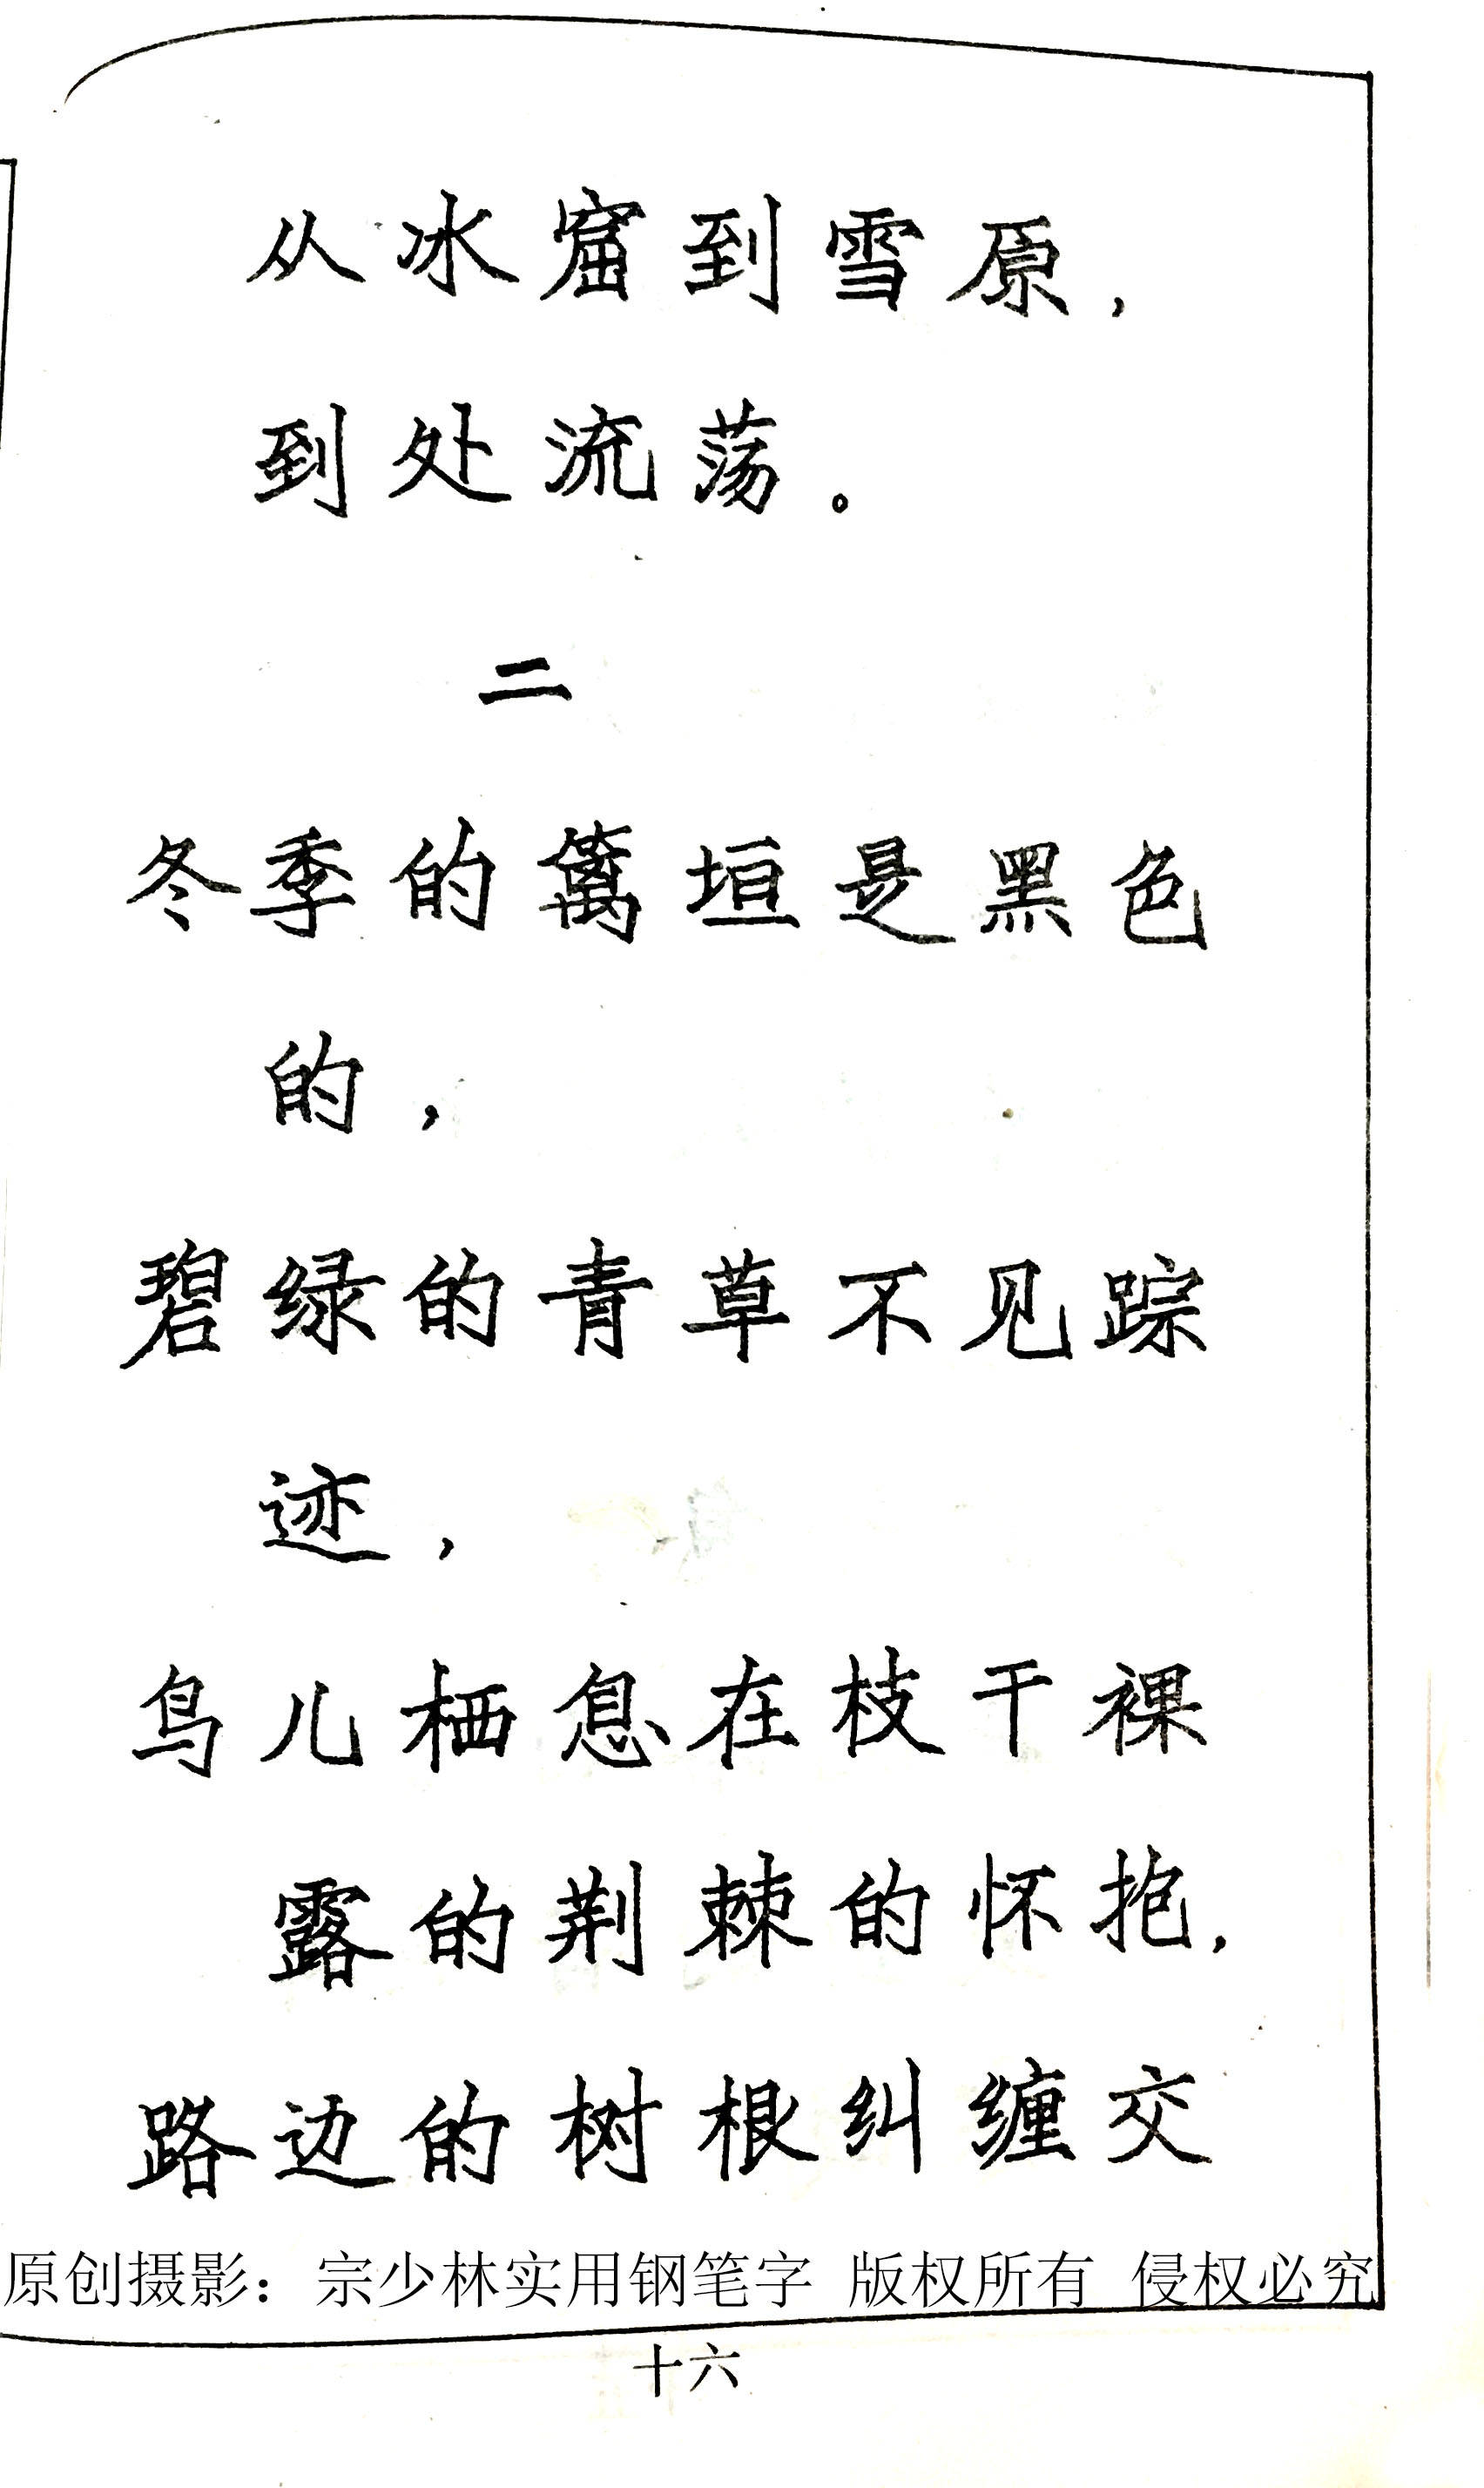 从冰窟到雪原，
到处流荡。
二
冬季的篱垣是黑色
的，
碧绿的青草不见踪
迹，
鸟儿栖息在枝干裸
露的荆棘的怀抱，
路边的树根纠缠交
原创摄影：宗少林实用钢笔字 版权所有 侵权必究
十六